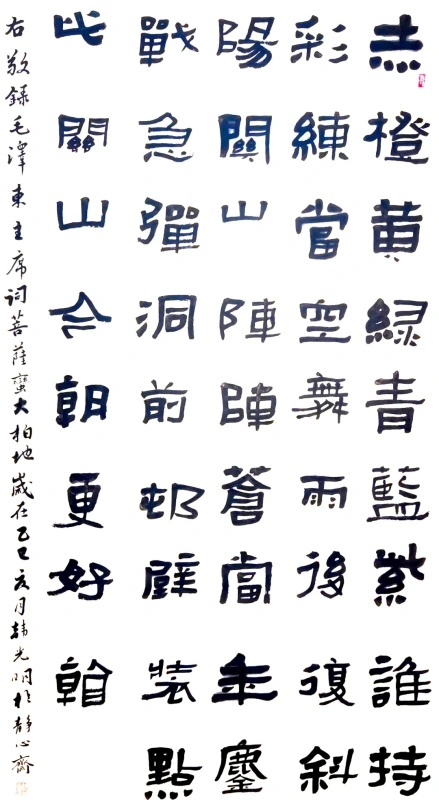 赤橙黄緑青藍紫誰持
彩練當空舞雨後復斜
陽關山陣陣蒼當年鏖
戰急彈洞前邨壁裝點
此關山今朝更好看
右敬錄毛澤東主席詞菩薩蠻大柏地歲在乙巳亥月韓光明於静心齋